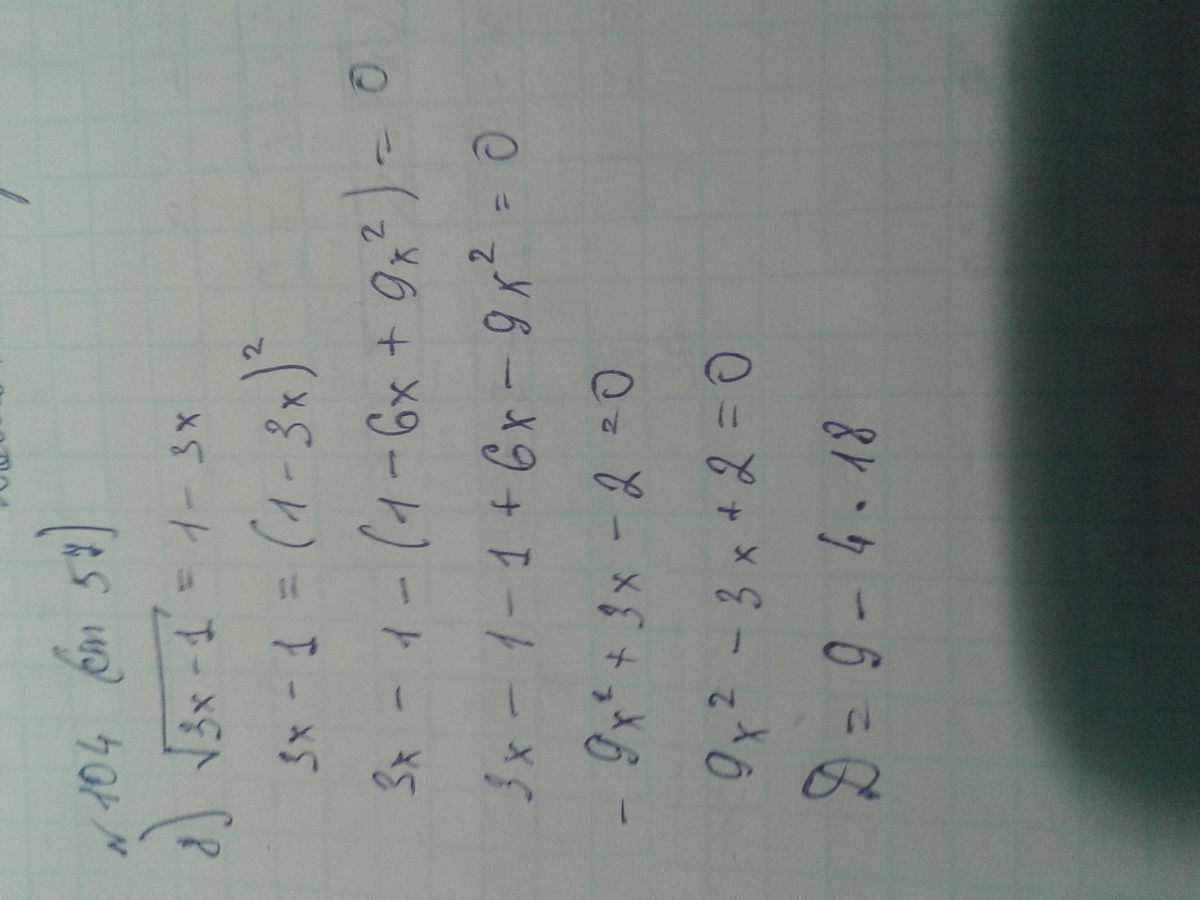 № 104 (ст 57)
в) √3x - 1 = 1 - 3x
3x - 1 = (1 - 3x)²
3x - 1 - (1 - 6x + 9x²) = 0
3x - 1 - 1 + 6x - 9x² = 0
- 9x² + 3x - 2 = 0
9x² - 3x + 2 = 0
D = 9 - 4 · 18